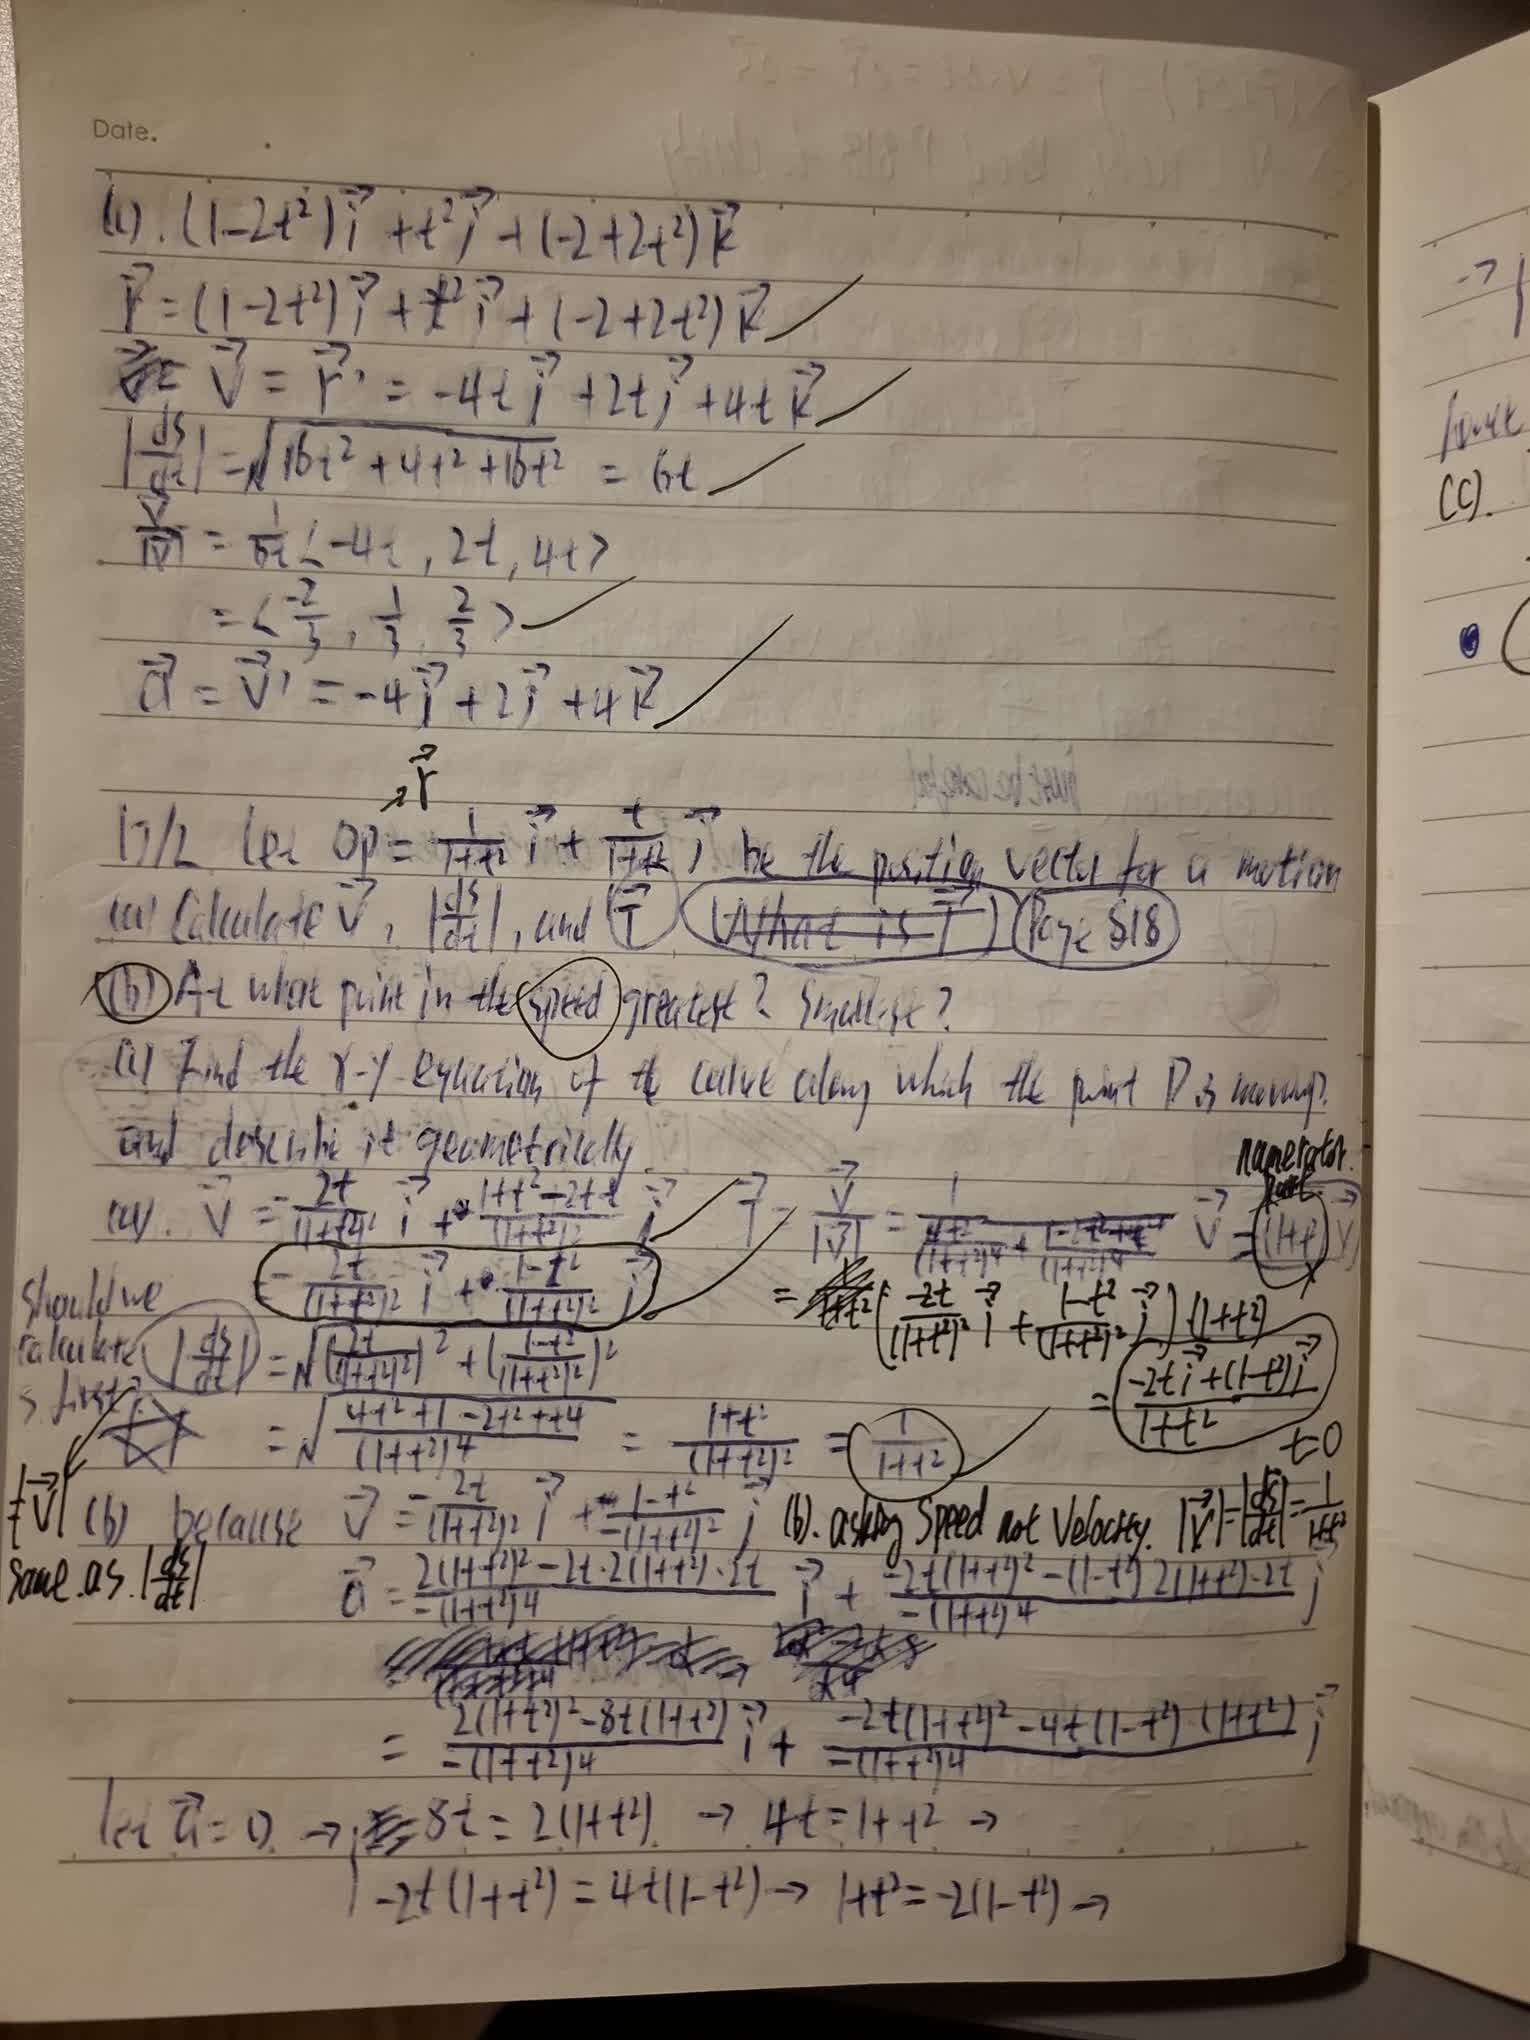 Date.
(c). (1-2t²)i⃗ + t²j⃗ + (-2+2t²)k⃗
r⃗ = (1-2t²)i⃗ + t²j⃗ + (-2+2t²)k⃗
v⃗ = r⃗' = -4t i⃗ + 2t j⃗ + 4t k⃗
|ds/dt| = √(16t² + 4t² + 16t²) = 6t
v⃗/|v⃗| = 1/6t <-4t, 2t, 4t>
= <-2/3, 1/3, 2/3>
a⃗ = v⃗' = -4i⃗ + 2j⃗ + 4k⃗
r⃗
Let OP = 1/(1+t²) i⃗ + t/(1+t²) j⃗ be the position vector for a motion
(a) Calculate v⃗, |ds/dt|, and T⃗ (What is T⃗) Page 818
(b) At what point in the speed greatest? Smallest?
(c) Find the x-y equation of the curve along which the point P is moving.
and describe it geometrically
numerator
part
(a). v⃗ = -2t/(1+t²)² i⃗ + (1+t²-2t·t)/(1+t²)² j⃗
T⃗ = v⃗/|v⃗| = 1/(4t²/(1+t²)⁴ + (1-2t²+t⁴)/(1+t²)⁴) v⃗ = (1+t²) v⃗
= -2t/(1+t²)² i⃗ + (1-t²)/(1+t²)² j⃗
= (-2t/(1+t²)² i⃗ + (1-t²)/(1+t²)² j⃗)·(1+t²)
should we
calculate
s first?
|ds/dt| = √((2t/(1+t²)²)² + ((1-t²)/(1+t²)²)²)
= (-2t i⃗ + (1-t²) j⃗)/(1+t²)
= √((4t²+1-2t²+t⁴)/(1+t²)⁴) = (1+t²)/(1+t²)² = 1/(1+t²)
t=0
|v⃗|
same as |ds/dt|
(b) because v⃗ = -2t/(1+t²)² i⃗ + (1-t²)/(1+t²)² j⃗
(b). asking Speed not Velocity. |v⃗| = |ds/dt| = 1/(1+t²)
a⃗ = (2(1+t²)² - 2t·2(1+t²)·2t)/(-(1+t²)⁴) i⃗ + (-2t(1+t²)² - (1-t²)2(1+t²)·2t)/(-(1+t²)⁴) j⃗
= (2(1+t²)² - 8t(1+t²))/(-(1+t²)⁴) i⃗ + (-2t(1+t²)² - 4t(1-t²)·(1+t²))/(-(1+t²)⁴) j⃗
let a⃗ = 0 → 8t = 2(1+t²) → 4t = 1+t² →
-2t(1+t²) = 4t(1-t²) → 1+t² = -2(1-t²) →
(C).